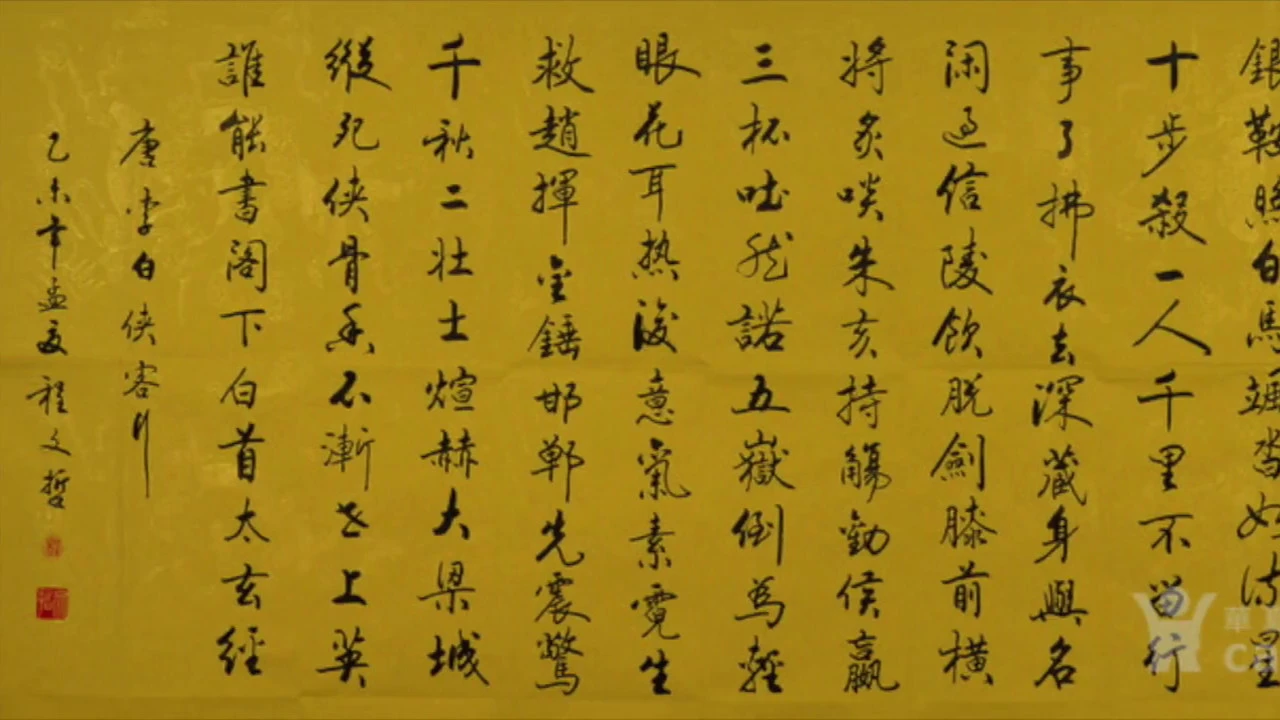 銀鞍照白馬颯沓如流星
十步殺一人千里不留行
事了拂衣去深藏身與名
闲過信陵飲脱劍膝前横
將炙啖朱亥持觴勸侯嬴
三杯吐然諾五嶽倒為輕
眼花耳热後意氣素霓生
救趙揮金錘邯鄲先震驚
千秋二壮士煊赫大梁城
縱死俠骨香不漸世上英
誰能書阁下白首太玄經
唐李白俠客行
乙未年孟夏程文哲
華